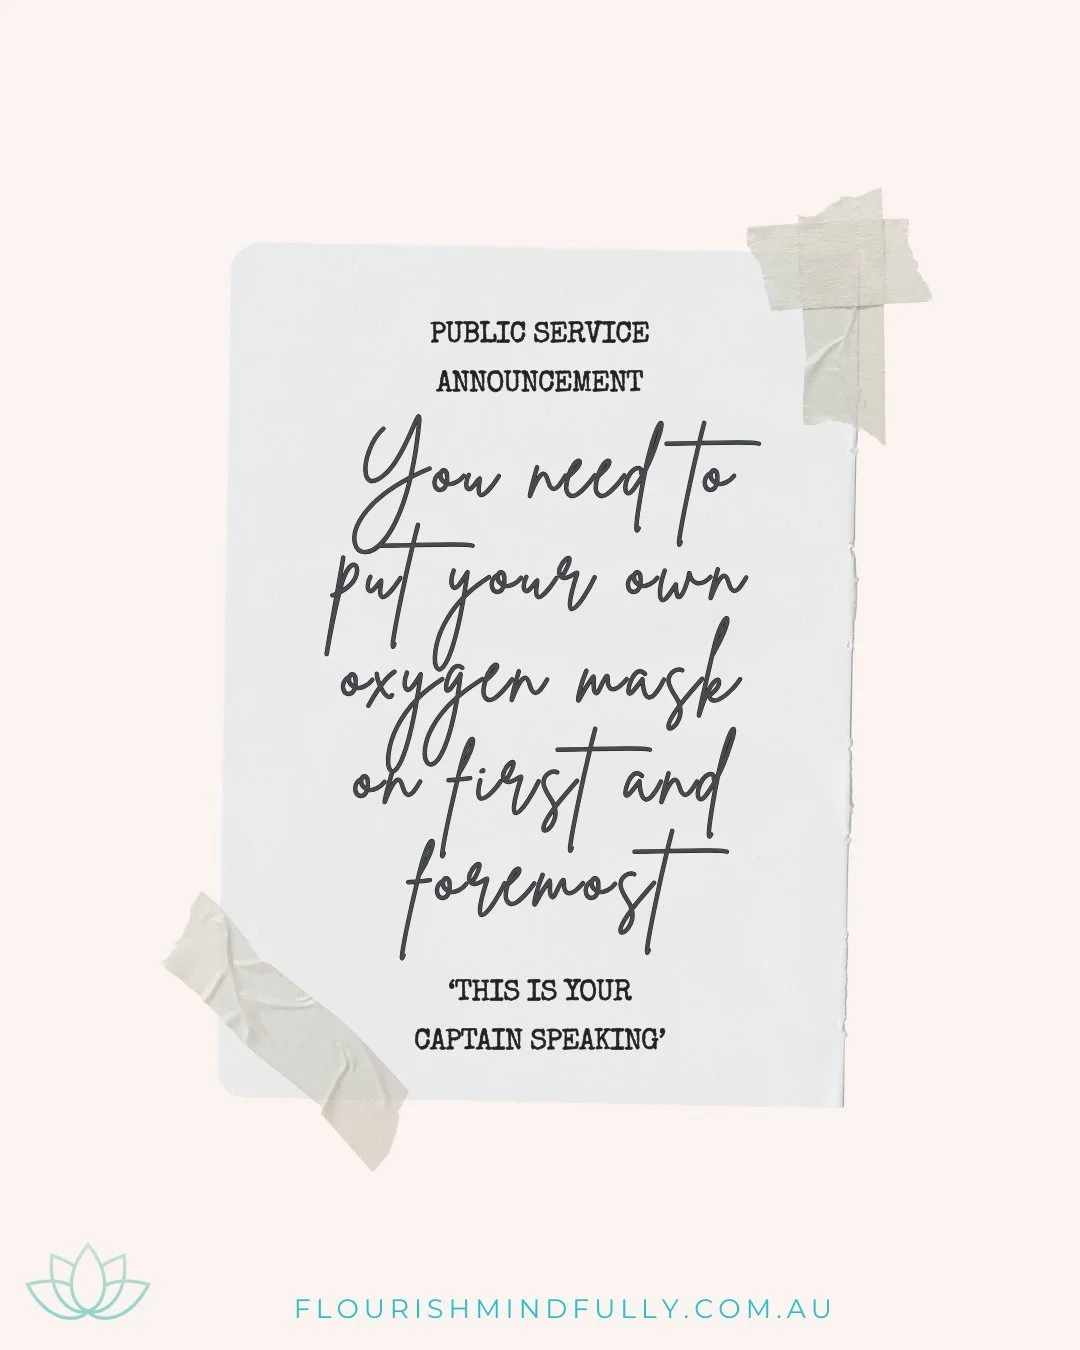 PUBLIC SERVICE
ANNOUNCEMENT
You need to
put your own
oxygen mask
on first and
foremost
‘THIS IS YOUR
CAPTAIN SPEAKING’
FLOURISHMINDFULLY.COM.AU